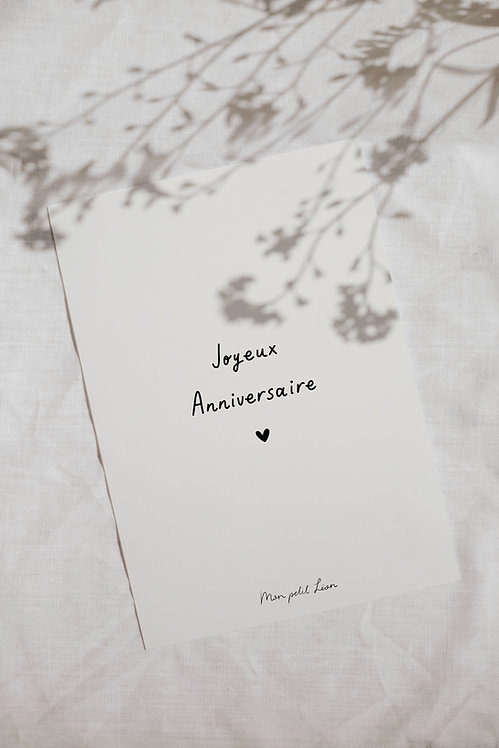 Joyeux
Anniversaire
Mon petit Léon